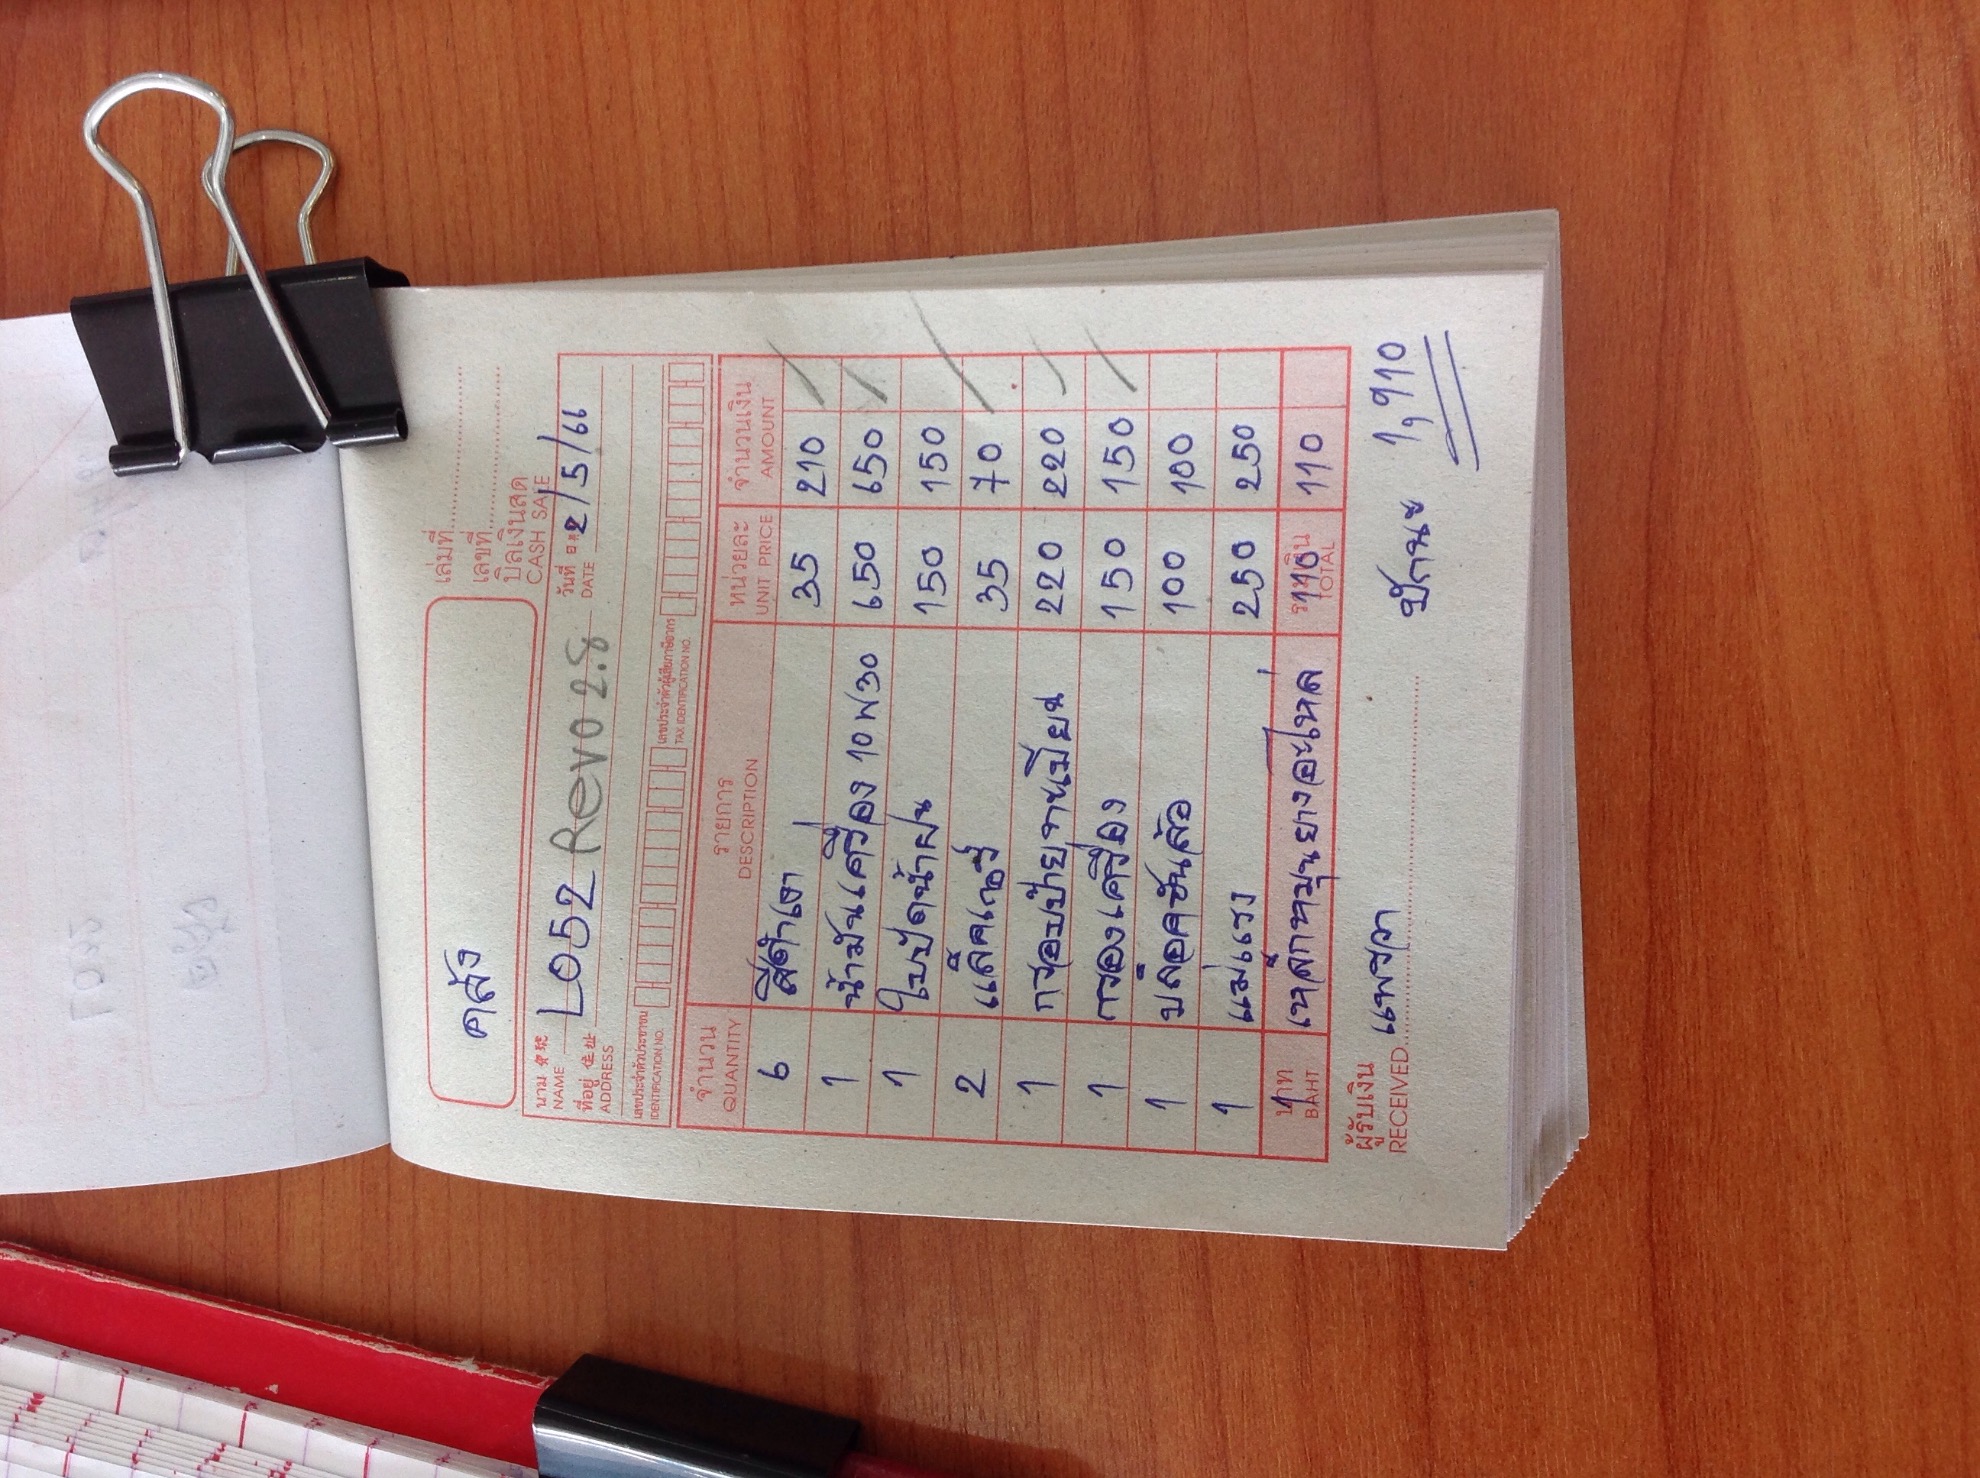 เล่มที่
เลขที่
คลัง
บิลเงินสด
CASH SALE
นาม L052 Revo 2.8 วันที่ 2/5/66
NAME DATE
ที่อยู่
ADDRESS
เลขประจำตัวประชาชน เลขประจำตัวผู้เสียภาษีอากร
IDENTIFICATION NO. TAX IDENTIFICATION NO.
จำนวน รายการ หน่วยละ จำนวนเงิน
QUANTITY DESCRIPTION UNIT PRICE AMOUNT
6 สีดำเงา 35 210
1 น้ำมันเครื่อง 10W30 650 650
1 ใบปัดน้ำฝน 150 150
2 แล็คเกอร์ 35 70
1 กรอบป้ายทะเบียน 220 220
1 กรองเครื่อง 150 150
1 บล็อคขันล้อ 100 100
1 แม่แรง 250 250
1 เหล็กหมุนยางอะไหล่ 110 110
บาท รวมเงิน
BAHT TOTAL
ผู้รับเงิน แพรวา
RECEIVED
1,910